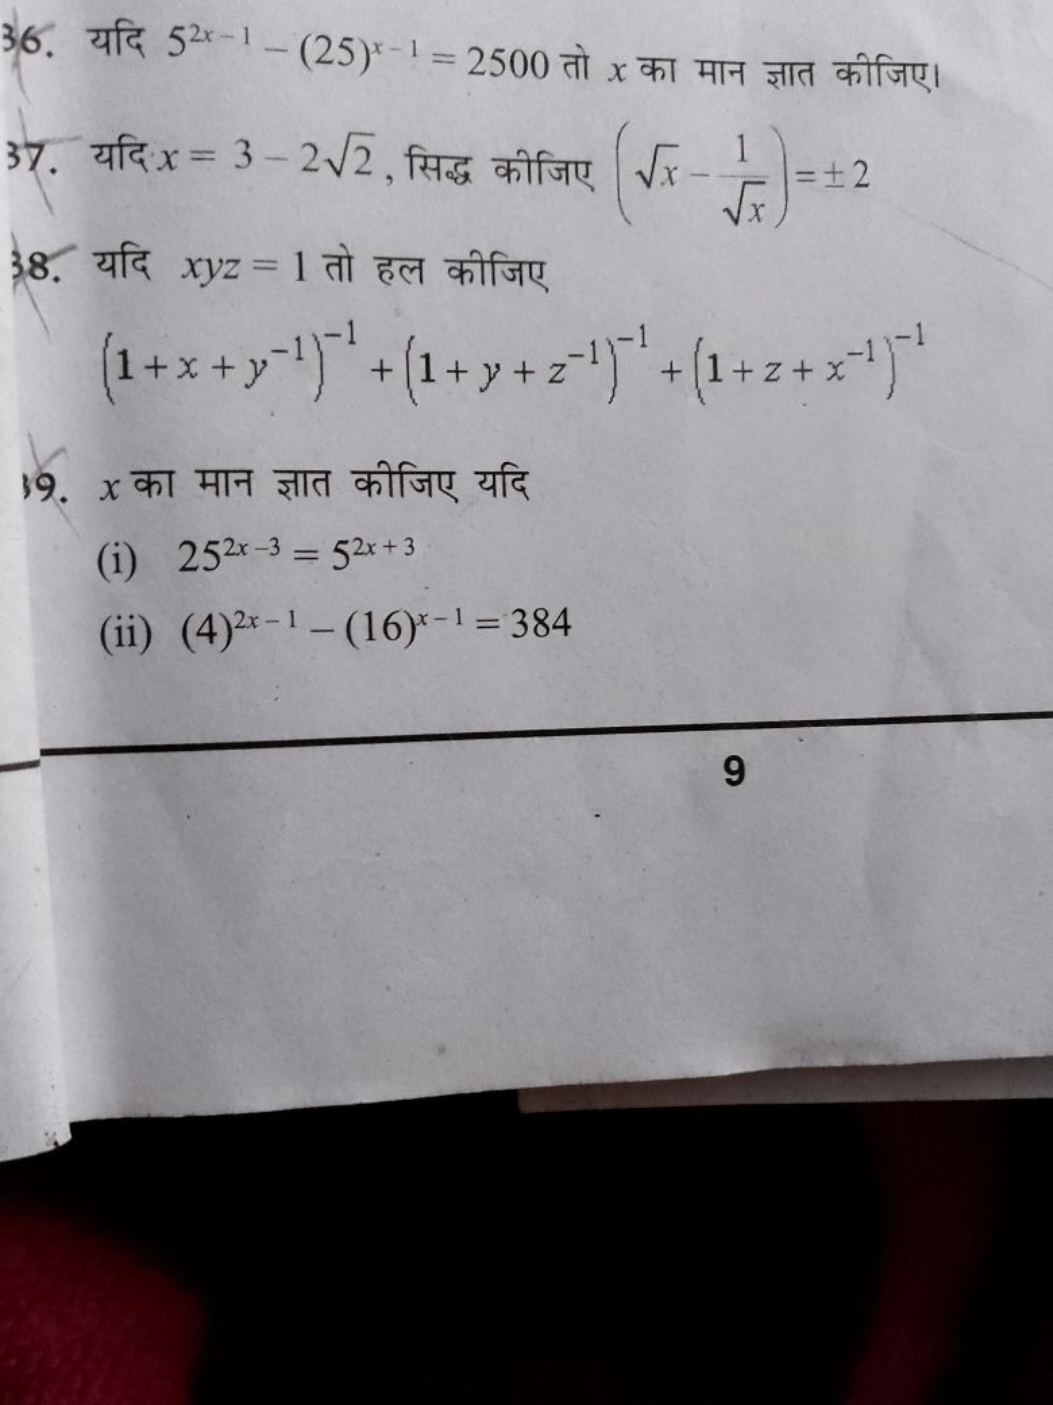 36. यदि 5^{2x – 1} – (25)^{x – 1} = 2500 तो x का मान ज्ञात कीजिए।
37. यदि x = 3 – 2√2, सिद्ध कीजिए (√x – 1/√x) = ± 2
38. यदि xyz = 1 तो हल कीजिए
(1 + x + y^{–1})^{–1} + (1 + y + z^{–1})^{–1} + (1 + z + x^{–1})^{–1}
39. x का मान ज्ञात कीजिए यदि
(i) 25^{2x – 3} = 5^{2x + 3}
(ii) (4)^{2x – 1} – (16)^{x – 1} = 384
9